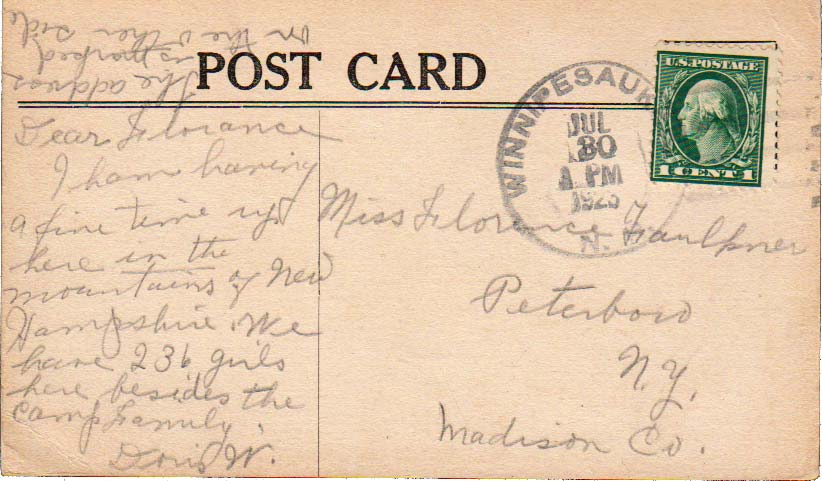 POST CARD
Dear Florance
I ham having
a fine time up
here in the
mountains of New
Hampshire. We
have 236 girls
here besides the
Camp Family.
Doris W.
The address
is marked
on the other side
WINNIPESAUK
JUL
30
PM
1923
N.H.
U.S. POSTAGE
1 CENT 1
Miss Florence Faulkner
Peterboro
N.Y.
Madison Co.